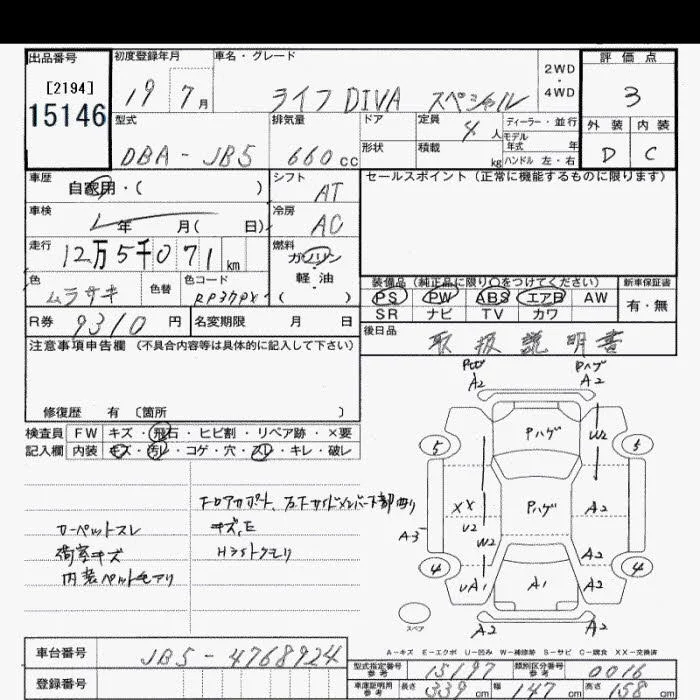 出品番号 初度登録年月 車名・グレード 2WD・4WD 評価点
[2194]
15146
19 7月 ライフ DIVA スペシャル 3
型式 排気量 ドア 定員 4人 ディーラー・並行 外装 内装
モデル年式 年
DBA-JB5 660cc 形状 積載 kg ハンドル 左・右 D C
車歴 自家用・( ) シフト AT セールスポイント(正常に機能するものに限ります)
車検 年 月( 日) 冷房 AC
走行 12万5千071km 燃料 ガソリン・軽油 ( )
装備品(純正品に限り○をつけてください) 新車保証書
色 ムラサキ 色替 色コード RP37PX
PS PW ABS エアB AW 有・無
SR ナビ TV カワ
R券 9310円 名変期限 月 日 後日品 取扱説明書
注意事項申告欄(不具合内容等は具体的に記入して下さい)
修復歴 有〔箇所 〕
検査員記入欄 FW キズ・飛石・ヒビ割・リペア跡・×要
内装 キズ・汚レ・コゲ・穴・スレ・キレ・破レ
カーペットスレ
荷室キズ
内装ペット毛アリ
キズ、E
Hライトクモリ
A2 PハゲA2
Pハゲ W2
5 5
Pハゲ
XX A2
U2
A3 W2 A2
4 4
UA1 A1 A2
スペア A2 A2
A-キズ E-エクボ U-凹み W-補修跡 S-サビ C-腐食 XX-交換済
車台番号 JB5-4768924
型式指定番号 参考 15197 類別区分番号 参考 0016
登録番号 車庫証明用 参考 長さ 339cm 幅 147cm 高さ 158cm